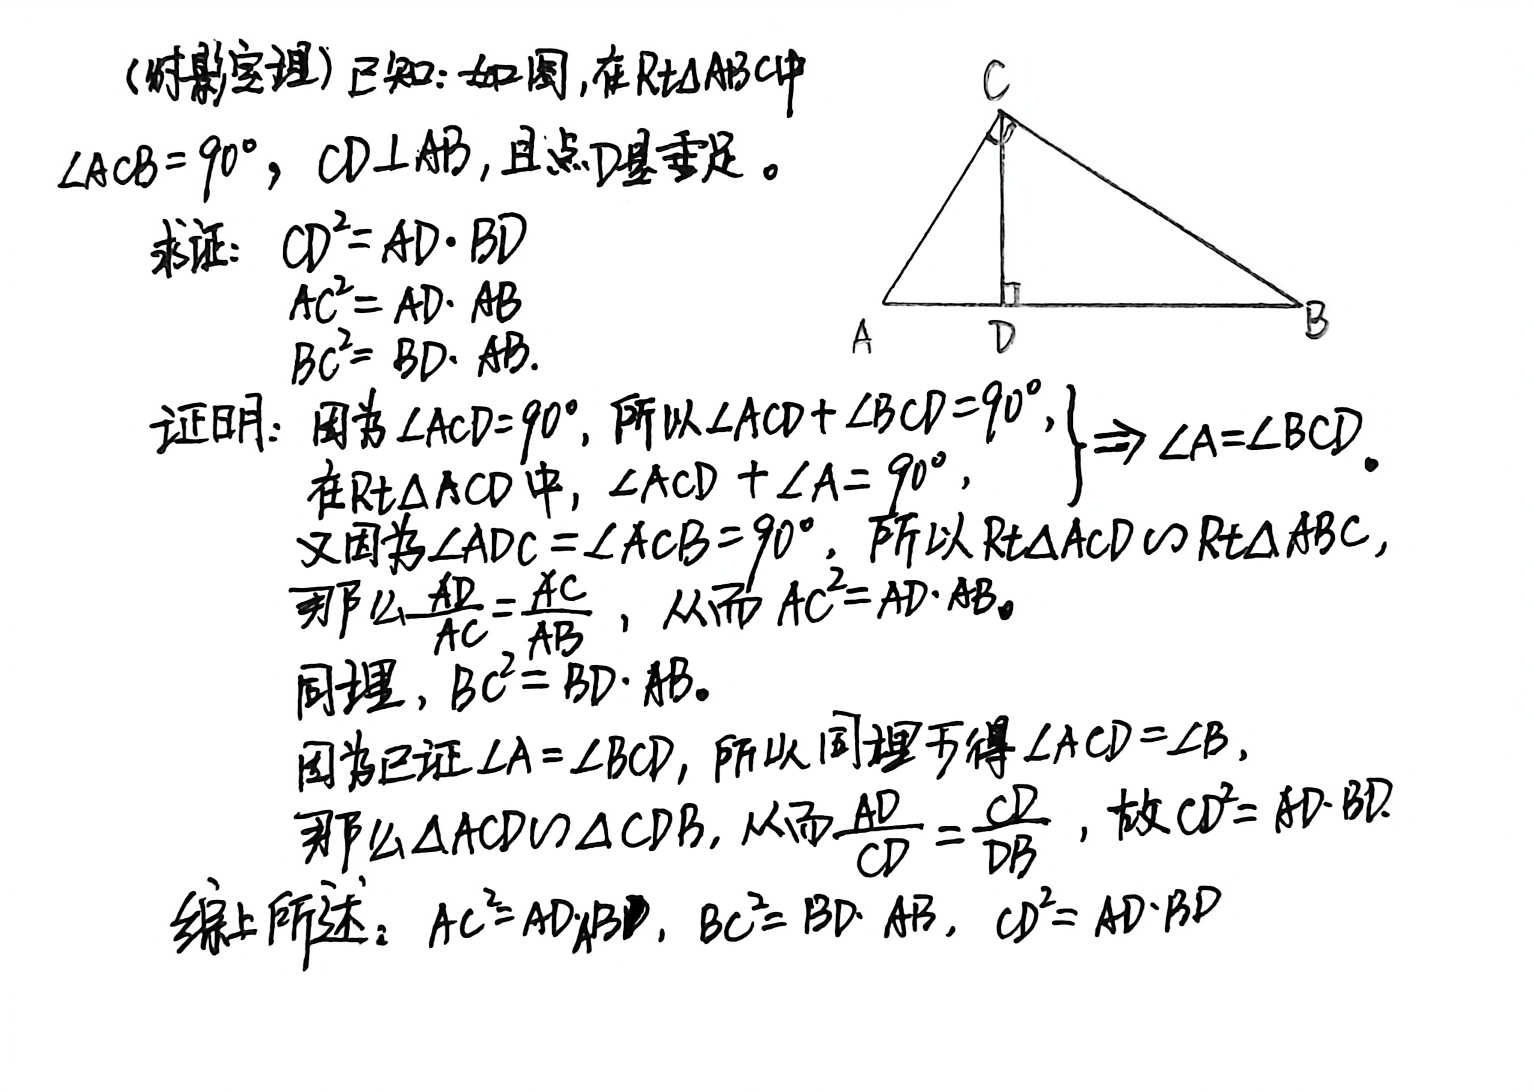 (射影定理)已知:如图,在Rt△ABC中
∠ACB=90°, CD⊥AB,且点D是垂足。
求证: CD²=AD·BD
AC²=AD·AB
BC²=BD·AB.
C
A
D
B
证明: 因为∠ACD=90°, 所以∠ACD+∠BCD=90°,
在Rt△ACD中, ∠ACD+∠A=90°,
} ⇒ ∠A=∠BCD。
又因为∠ADC=∠ACB=90°, 所以Rt△ACD∽Rt△ABC,
那么 AD/AC = AC/AB , 从而 AC²=AD·AB。
同理, BC²=BD·AB。
因为已证∠A=∠BCD, 所以同理可得∠ACD=∠B,
那么△ACD∽△CDB, 从而 AD/CD = CD/DB , 故CD²=AD·BD.
综上所述: AC²=AD·AB, BC²=BD·AB, CD²=AD·BD